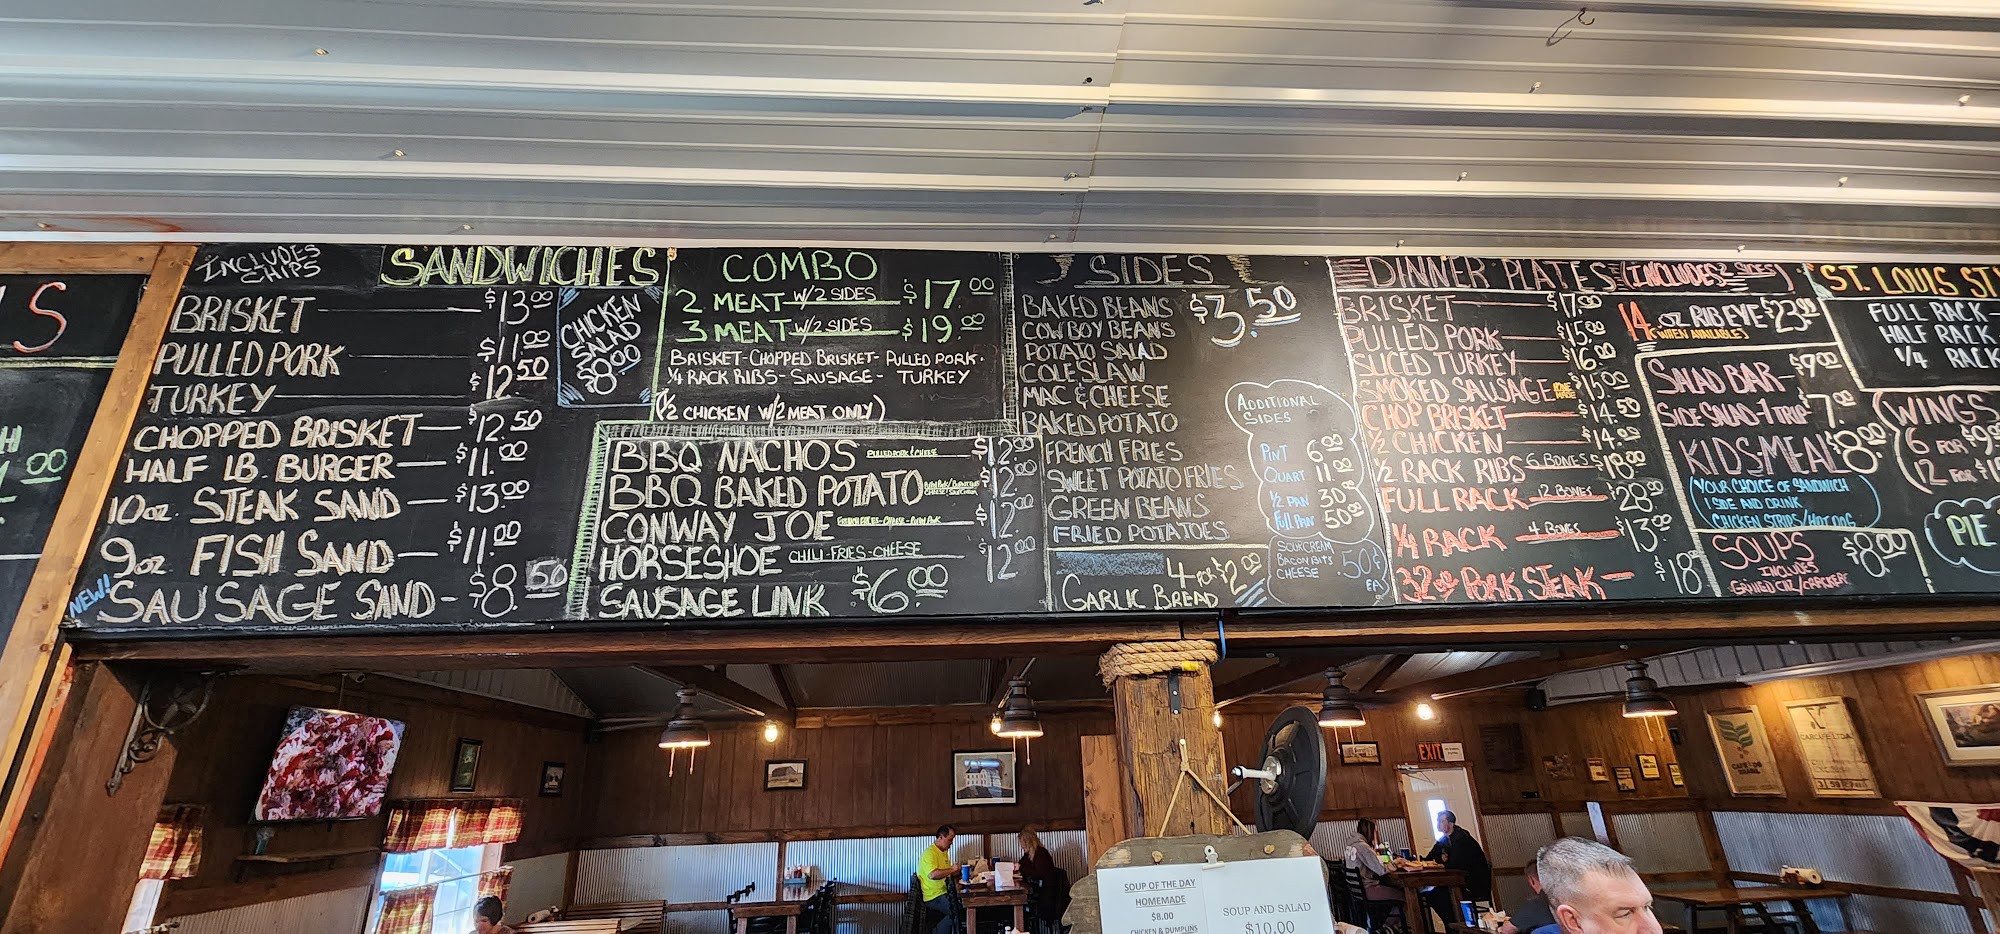 S
00
INCLUDES
CHIPS
SANDWICHES
BRISKET $13.00
PULLED PORK $11.00
TURKEY $12.50
CHOPPED BRISKET $12.50
HALF LB. BURGER $11.00
10oz. STEAK SAND $13.00
9oz FISH SAND $11.00
NEW! SAUSAGE SAND- $8.50
CHICKEN
SALAD
$8.00
COMBO
2 MEAT W/2 SIDES $17.00
3 MEAT W/2 SIDES $19.00
BRISKET-CHOPPED BRISKET- PULLED PORK-
1/4 RACK RIBS- SAUSAGE- TURKEY
(1/2 CHICKEN W/2 MEAT ONLY)
BBQ NACHOS PULLED PORK & CHEESE $12.00
BBQ BAKED POTATO $12.00
CONWAY JOE $12.00
HORSESHOE CHILI-FRIES-CHEESE 12.00
SAUSAGE LINK $6.00
SIDES
$3.50
BAKED BEANS
COWBOY BEANS
POTATO SALAD
COLESLAW
MAC & CHEESE
BAKED POTATO
FRENCH FRIES
SWEET POTATO FRIES
GREEN BEANS
FRIED POTATOES
ADDITIONAL
SIDES
PINT 6.00
QUART 11.00
1/2 PAN 30.00
FULL PAN 50.00
SOUR CREAM
BACON BITS
CHEESE .50¢
EA
4 FOR $2.00
GARLIC BREAD
DINNER PLATES (INCLUDES 2 SIDES)
BRISKET $17.00
PULLED PORK $15.00
SLICED TURKEY $16.00
SMOKED SAUSAGE $15.00
CHOP BRISKET $14.50
1/2 CHICKEN $14.00
1/2 RACK RIBS 6 BONES $18.00
FULL RACK 12 BONES $28.00
1/4 RACK 4 BONES $13.00
32oz PORK STEAK $18
14 OZ RIBEYE $23.00
(WHEN AVAILABLE)
SALAD BAR- $9.00
SIDE SALAD-1 TRIP $7.00
KIDS-MEAL $8.00
YOUR CHOICE OF SANDWICH
1 SIDE AND DRINK
CHICKEN STRIPS/HOT DOG
SOUPS $8.00
INCLUDES
GRILLED CHZ/CRACKER
ST. LOUIS ST
FULL RACK-
HALF RACK
1/4 RACK
(WINGS
6 FOR $9
12 FOR $1
PIE
EXIT
SOUP OF THE DAY
HOMEMADE
$8.00
CHICKEN & DUMPLINS
SOUP AND SALAD
$10.00